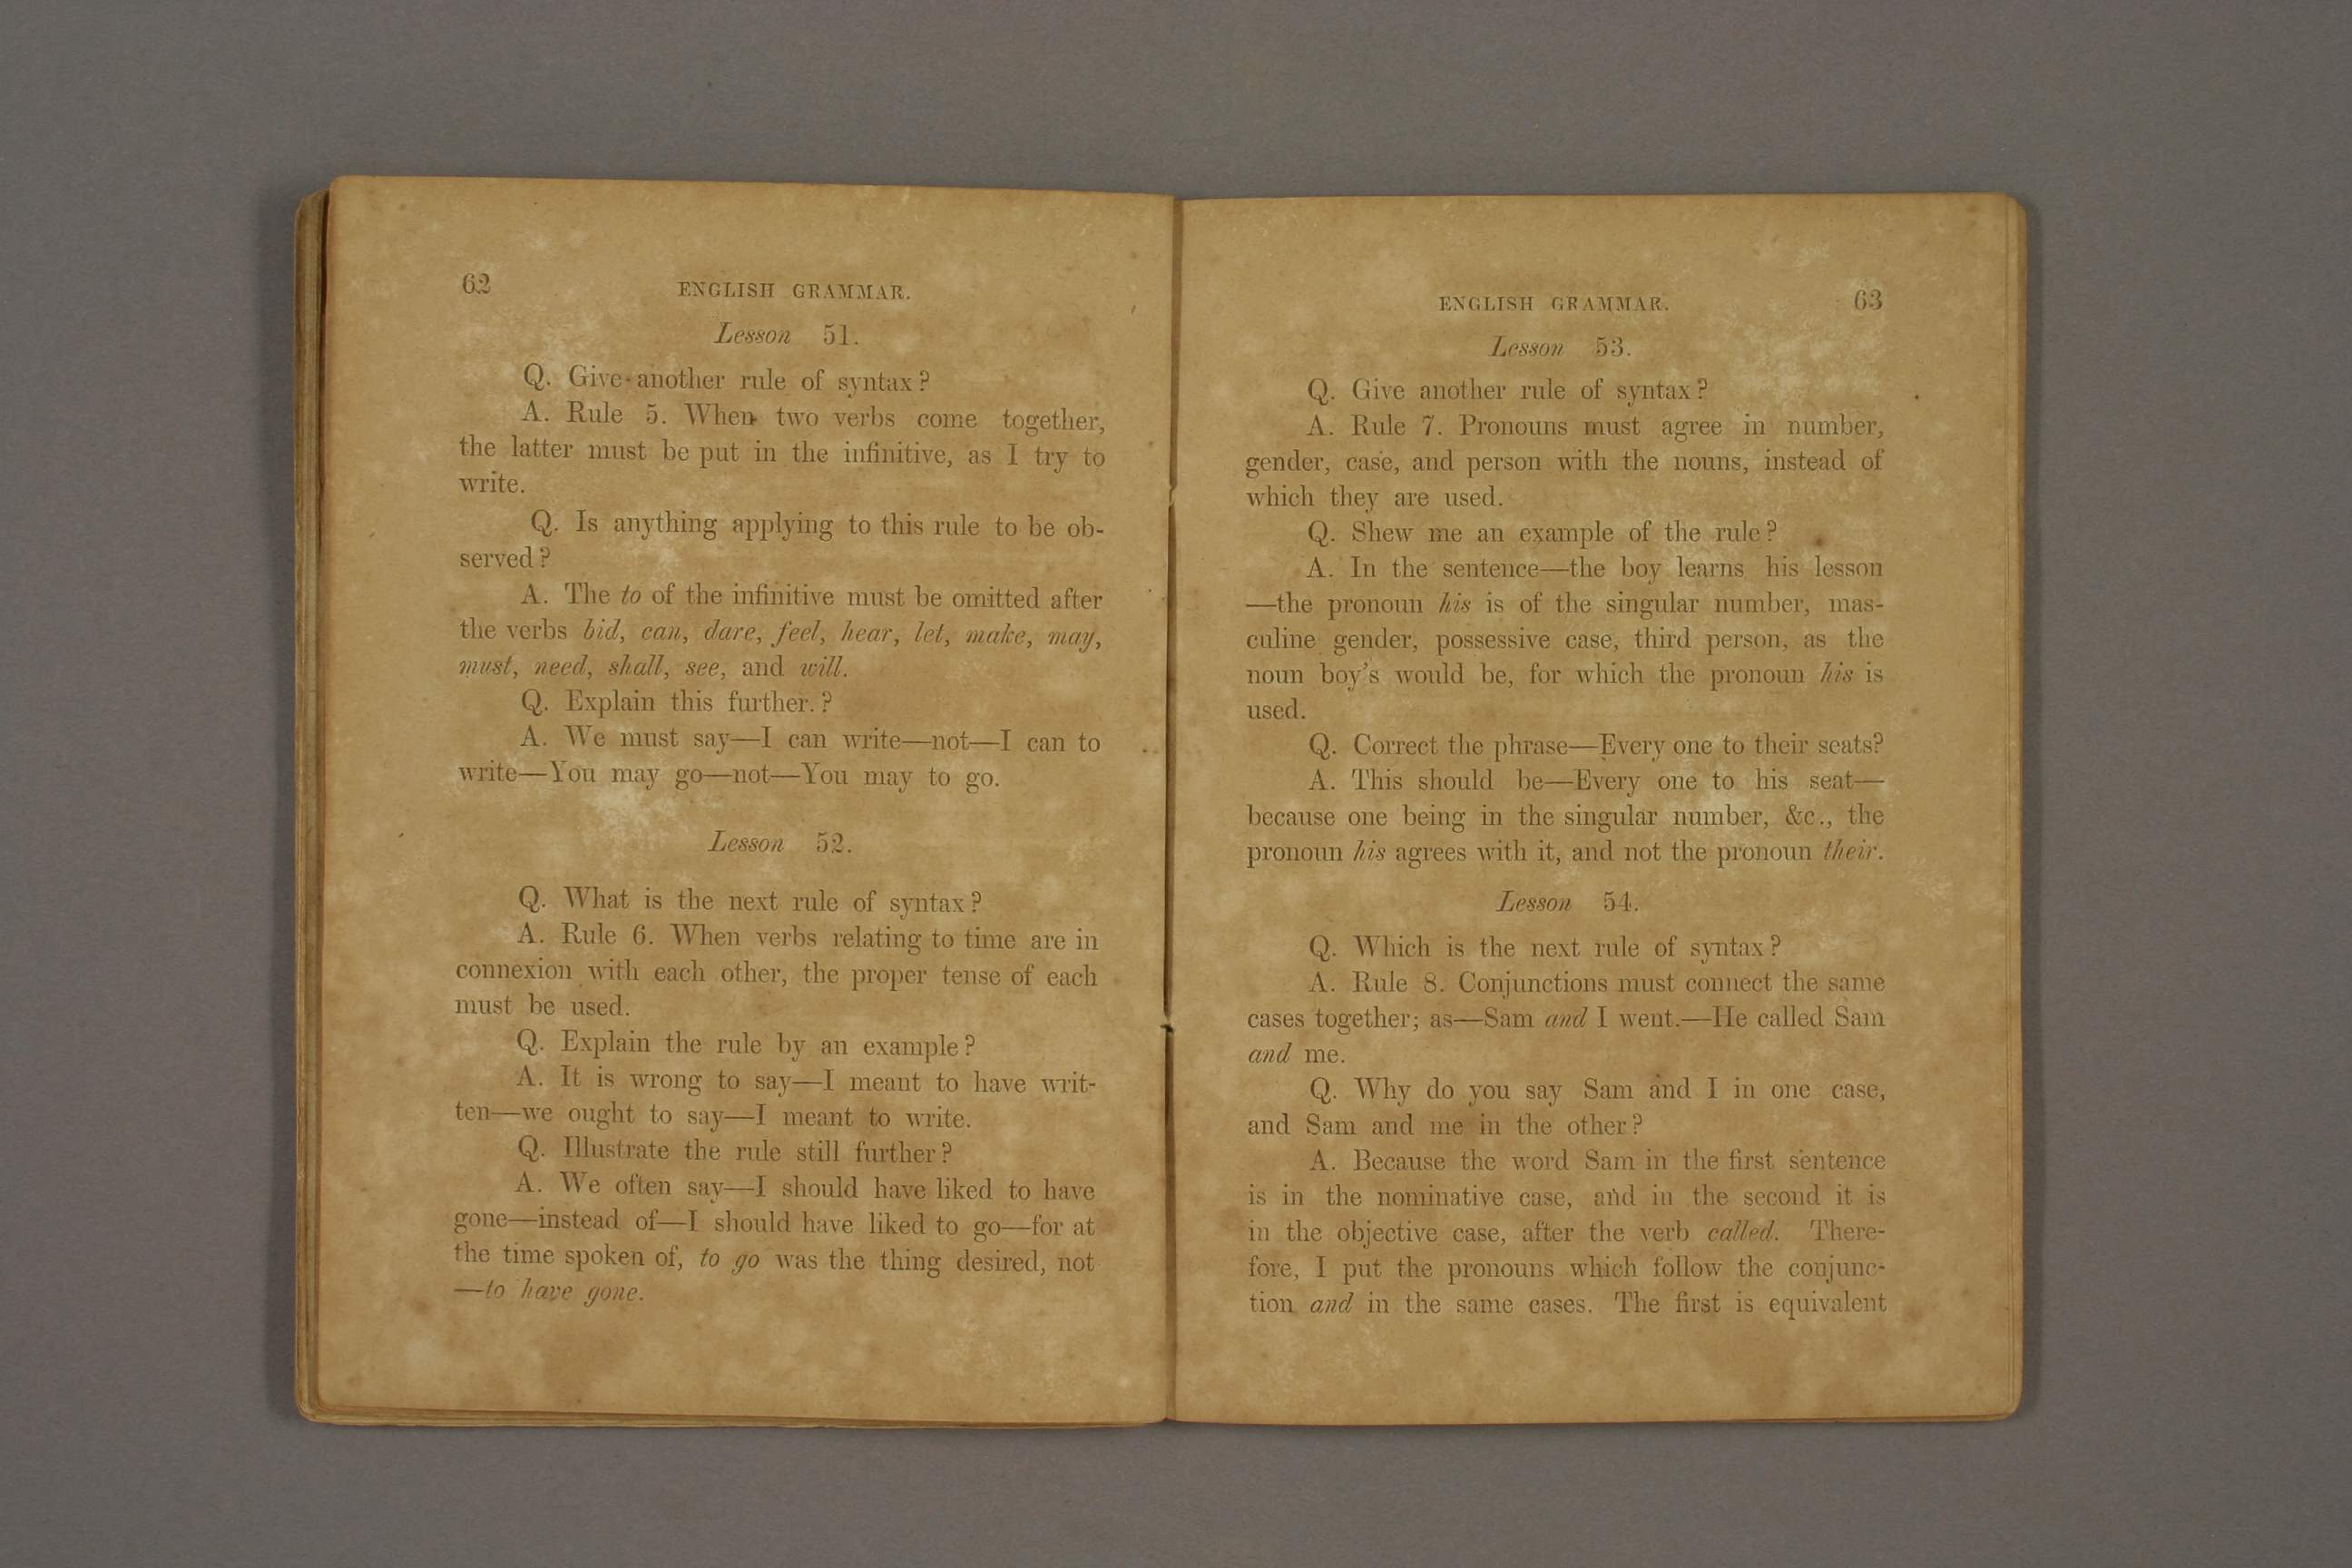 62
ENGLISH GRAMMAR.
Lesson 51.
Q. Give another rule of syntax?
A. Rule 5. When two verbs come together,
the latter must be put in the infinitive, as I try to
write.
Q. Is anything applying to this rule to be ob-
served?
A. The to of the infinitive must be omitted after
the verbs bid, can, dare, feel, hear, let, make, may,
must, need, shall, see, and will.
Q. Explain this further.?
A. We must say—I can write—not—I can to
write—You may go—not—You may to go.
Lesson 52.
Q. What is the next rule of syntax?
A. Rule 6. When verbs relating to time are in
connexion with each other, the proper tense of each
must be used.
Q. Explain the rule by an example?
A. It is wrong to say—I meant to have writ-
ten—we ought to say—I meant to write.
Q. Illustrate the rule still further?
A. We often say—I should have liked to have
gone—instead of—I should have liked to go—for at
the time spoken of, to go was the thing desired, not
—to have gone.
ENGLISH GRAMMAR.
63
Lesson 53.
Q. Give another rule of syntax?
A. Rule 7. Pronouns must agree in number,
gender, case, and person with the nouns, instead of
which they are used.
Q. Shew me an example of the rule?
A. In the sentence—the boy learns his lesson
—the pronoun his is of the singular number, mas-
culine gender, possessive case, third person, as the
noun boy's would be, for which the pronoun his is
used.
Q. Correct the phrase—Every one to their seats?
A. This should be—Every one to his seat—
because one being in the singular number, &c., the
pronoun his agrees with it, and not the pronoun their.
Lesson 54.
Q. Which is the next rule of syntax?
A. Rule 8. Conjunctions must connect the same
cases together; as—Sam and I went.—He called Sam
and me.
Q. Why do you say Sam and I in one case,
and Sam and me in the other?
A. Because the word Sam in the first sentence
is in the nominative case, and in the second it is
in the objective case, after the verb called. There-
fore, I put the pronouns which follow the conjunc-
tion and in the same cases. The first is equivalent